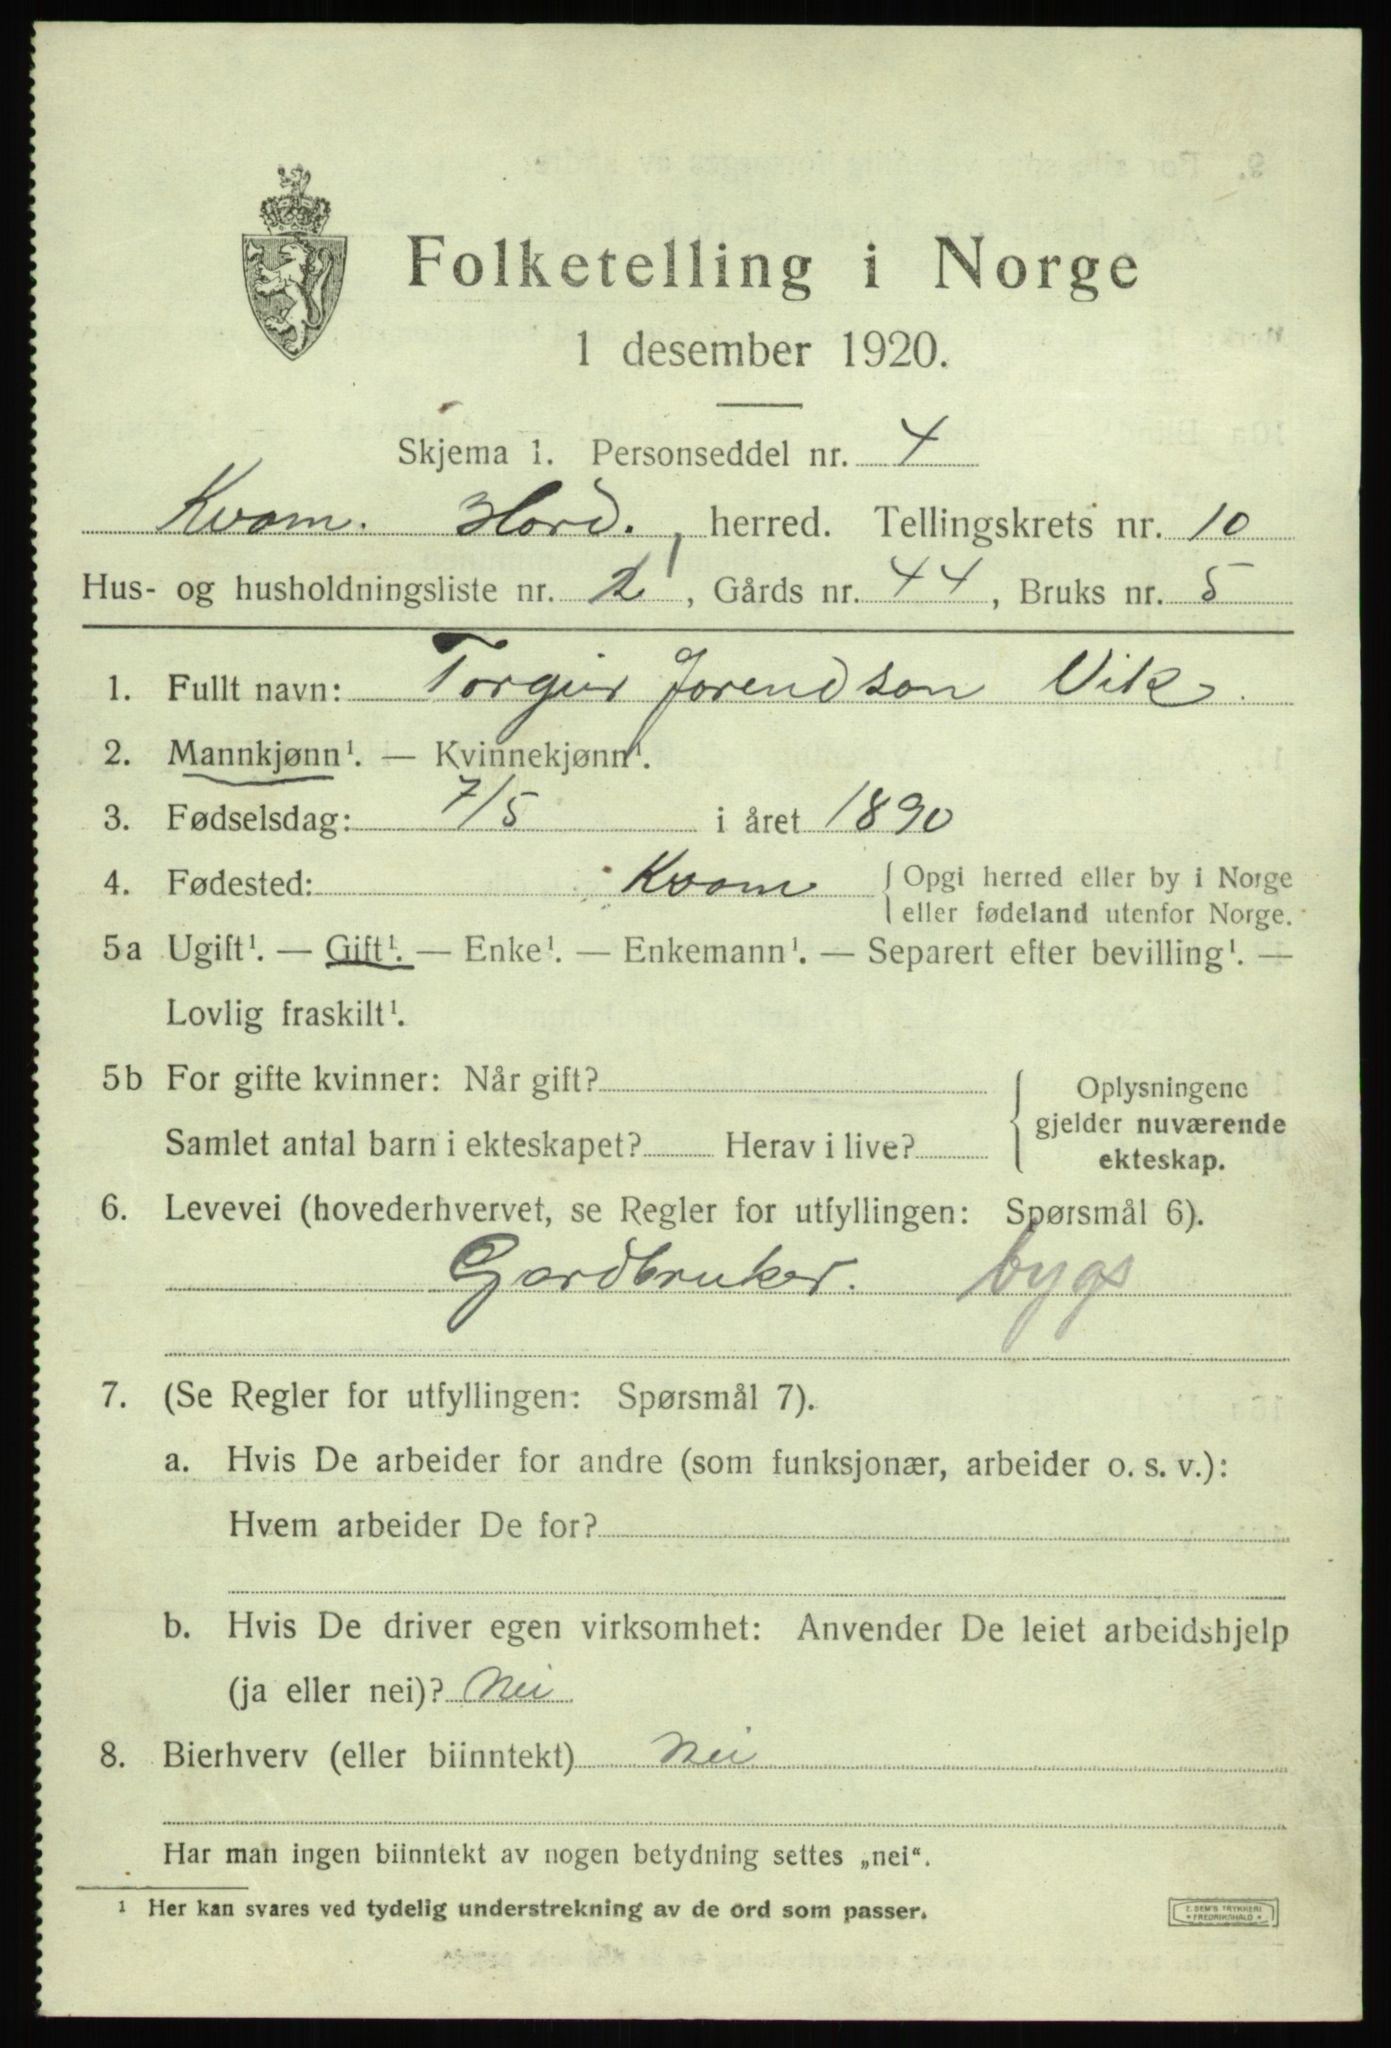 Folketelling i Norge
1 desember 1920.
Skjema 1. Personseddel nr. 4
Kvam. Hord., herred. Tellingskrets nr. 10
Hus- og husholdningsliste nr. 2, Gårds nr. 44, Bruks nr. 5
1. Fullt navn: Torgeir Jorendson Vik.
2. Mannkjønn¹. — Kvinnekjønn¹.
3. Fødselsdag: 7/5 i året 1890
4. Fødested: Kvam { Opgi herred eller by i Norge
eller fødeland utenfor Norge.
5a Ugift¹. — Gift¹. — Enke¹. — Enkemann¹. — Separert efter bevilling¹. —
Lovlig fraskilt¹.
5b For gifte kvinner: Når gift?
Samlet antal barn i ekteskapet? Herav i live?
{ Oplysningene
gjelder nuværende
ekteskap.
6. Levevei (hovederhvervet, se Regler for utfyllingen: Spørsmål 6).
Gardbruker. bygs
7. (Se Regler for utfyllingen: Spørsmål 7).
a. Hvis De arbeider for andre (som funksjonær, arbeider o. s. v.):
Hvem arbeider De for?
b. Hvis De driver egen virksomhet: Anvender De leiet arbeidshjelp
(ja eller nei)? Nei
8. Bierhverv (eller biinntekt) Nei
Har man ingen biinntekt av nogen betydning settes „nei“.
¹ Her kan svares ved tydelig understrekning av de ord som passer.
E. SEM'S TRYKKERI
* FREDRIKSHALD *